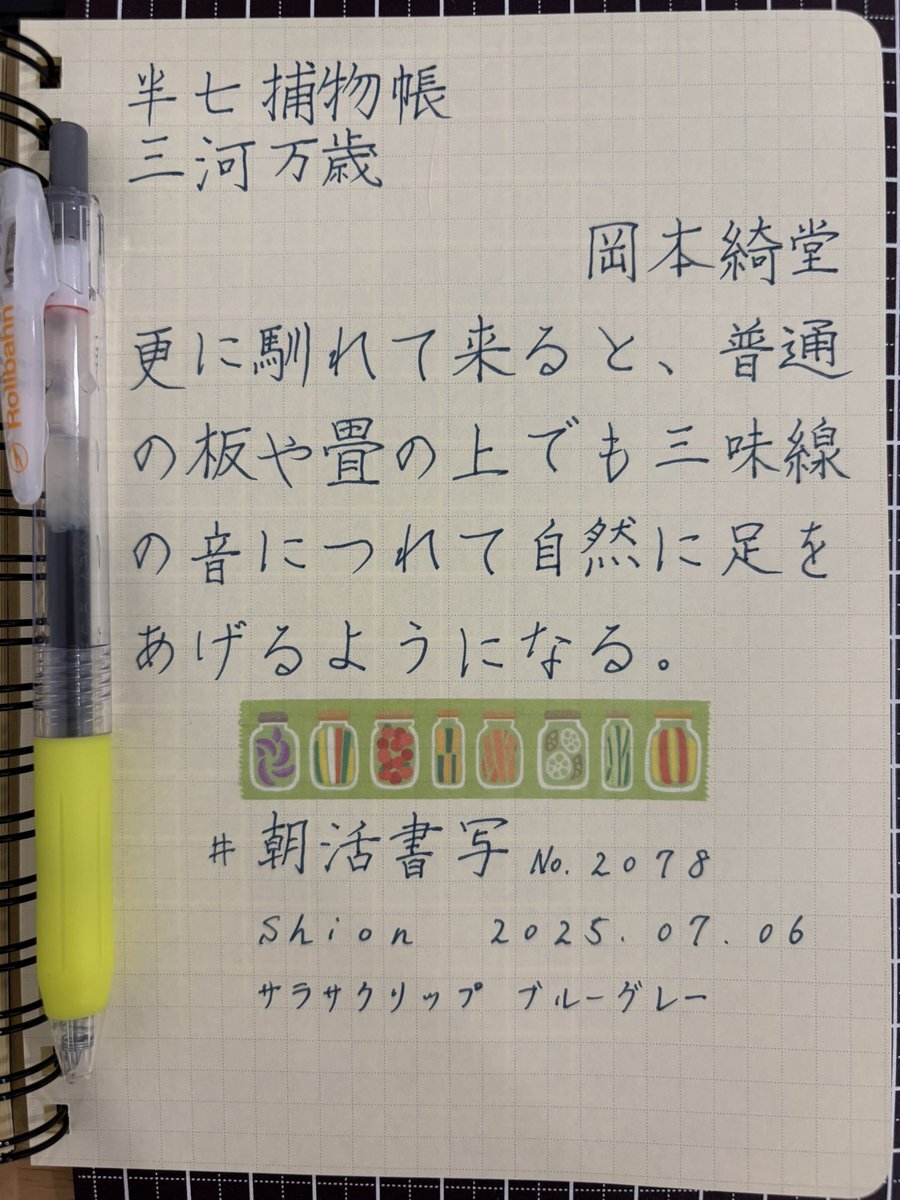 半七捕物帳
三河万歳
岡本綺堂
更に馴れて来ると、普通
の板や畳の上でも三味線
の音につれて自然に足を
あげるようになる。
#朝活書写 No.2078
Shion 2025.07.06
サラサクリップ ブルーグレー
Rollbahn